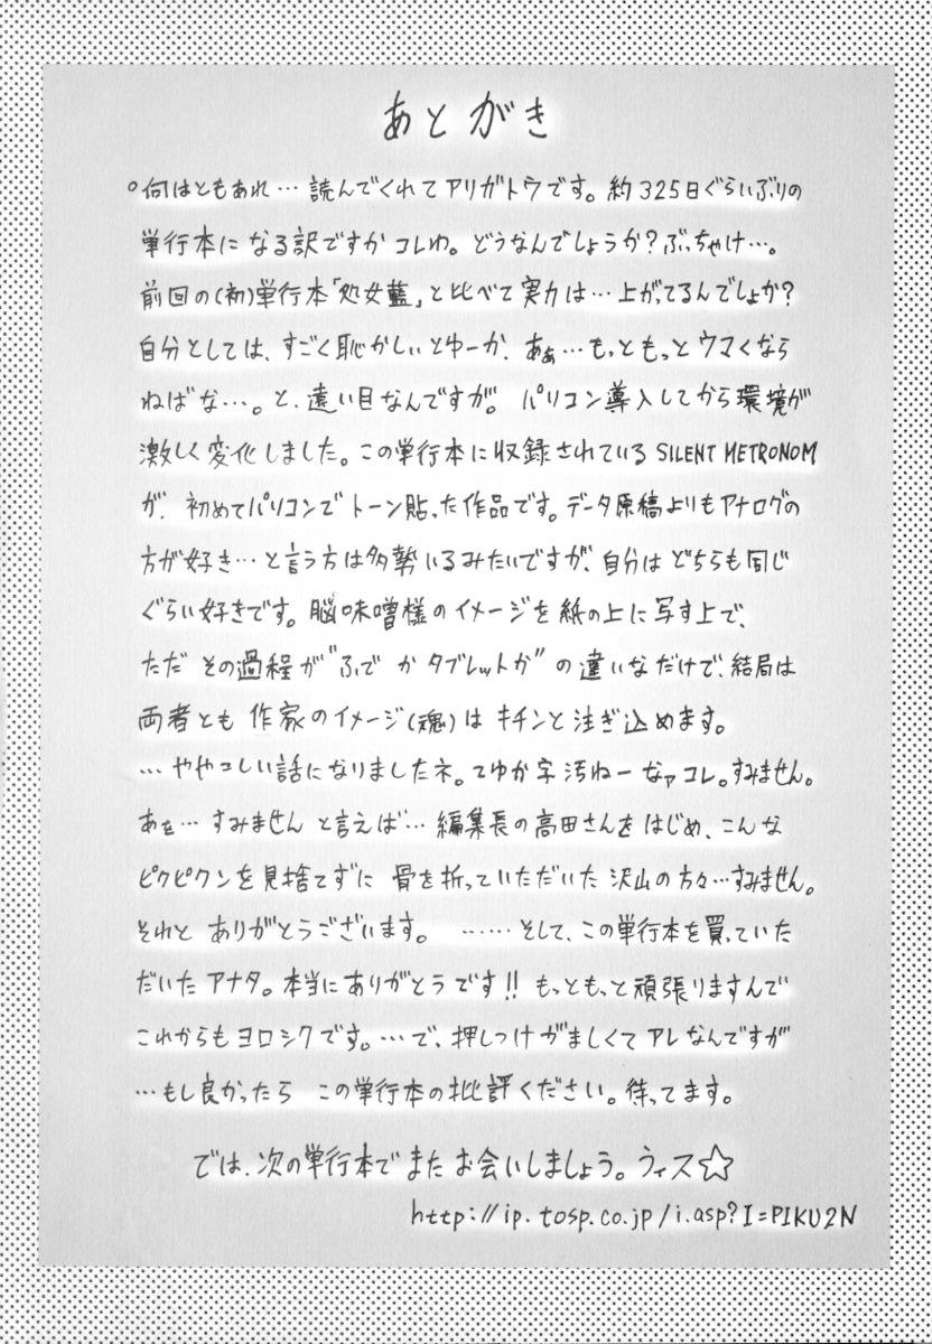 あとがき
○何はともあれ…読んでくれてアリガトウです。約325日ぐらいぶりの
単行本になる訳ですがコレわ。どうなんでしょうか?ぶっちゃけ…。
前回の(初)単行本「処女藍」と比べて実力は…上がってるんでしょか?
自分としては、すごく恥かしいとゆーか、あぁ…もっともっとウマくなら
ねばな…。と、遠い目なんですが。パソコン導入してから環境が
激しく変化しました。この単行本に収録されているSILENT METRONOM
が、初めてパソコンでトーン貼った作品です。データ原稿よりもアナログの
方が好き…と言う方は多勢いるみたいですが、自分はどちらも同じ
ぐらい好きです。脳味噌様のイメージを紙の上に写す上で、
ただその過程が"ふでかタブレットか"の違いなだけで、結局は
両者とも作家のイメージ(魂)はキチンと注ぎ込めます。
…ややこしい話になりましたネ。てゆか字汚ねーなァコレ。すみません。
あぁ…すみませんと言えば…編集長の高田さんをはじめ、こんな
ピクピクンを見捨てずに骨を折っていただいた沢山の方々…すみません。
それとありがとうございます。……そして、この単行本を買っていた
だいたアナタ。本当にありがとうです!!もっともっと頑張りますんで
これからもヨロシクです。…で、押しつけがましくてアレなんですが
…もし良かったらこの単行本の批評ください。待ってます。
では、次の単行本でまたお会いしましょう。ラィス☆
http://ip.tosp.co.jp/i.asp?I=PIKU2N